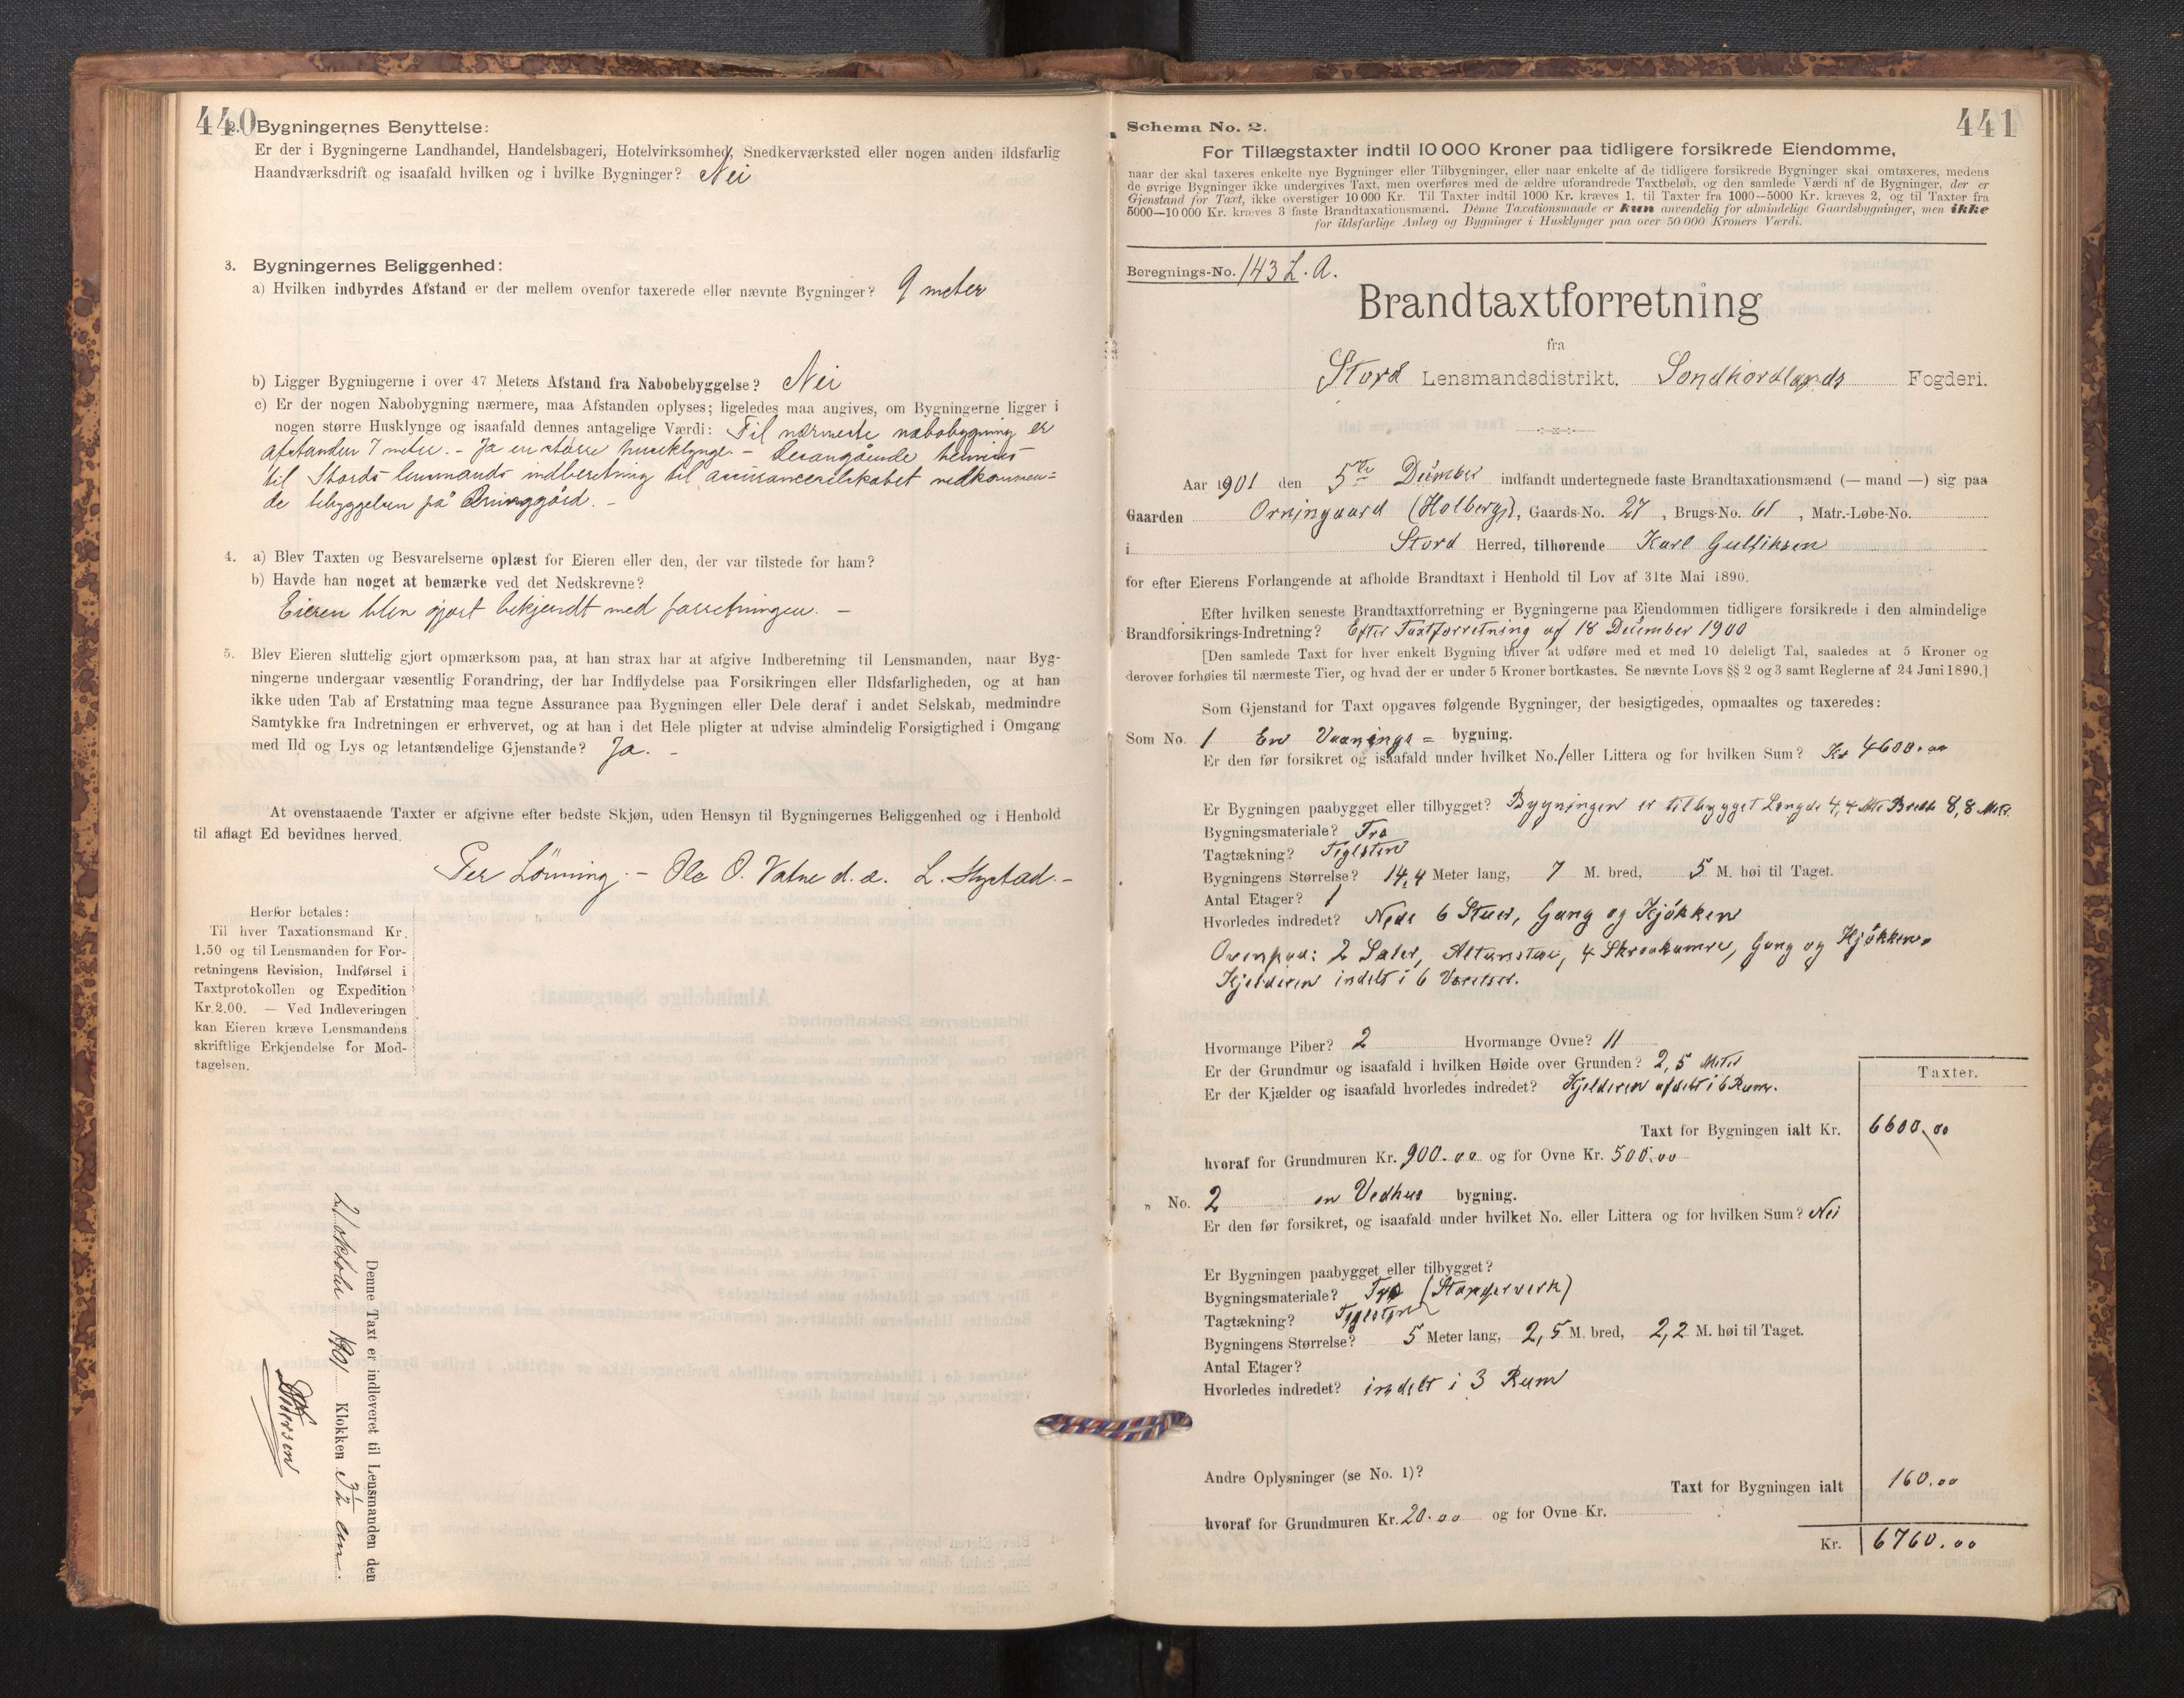 440
2. Bygningernes Benyttelse:
Er der i Bygningerne Landhandel, Handelsbageri, Hotelvirksomhed, Snedkerværksted eller nogen anden ildsfarlig
Haandværksdrift og isaafald hvilken og i hvilke Bygninger? Nei
3. Bygningernes Beliggenhed:
a) Hvilken indbyrdes Afstand er der mellem ovenfor taxerede eller nævnte Bygninger? 9 meter
b) Ligger Bygningerne i over 47 Meters Afstand fra Nabobebyggelse? Nei
c) Er der nogen Nabobygning nærmere, maa Afstanden oplyses; ligeledes maa angives, om Bygningerne ligger i
nogen større Husklynge og isaafald dennes antagelige Værdi: Til nærmeste nabobygning er
afstanden 7 meter. - Ja en større husklynge. - Desangående henvises
til Stords lensmands indberetning til assuranceselskabet vedkommen=
de bebyggelsen på Orninggård. -
4. a) Blev Taxten og Besvarelserne oplæst for Eieren eller den, der var tilstede for ham?
b) Havde han noget at bemærke ved det Nedskrevne?
Eieren blev gjort bekjendt med forretningen. -
5. Blev Eieren sluttelig gjort opmærksom paa, at han strax har at afgive Indberetning til Lensmanden, naar Byg-
ningerne undergaar væsentlig Forandring, der har Indflydelse paa Forsikringen eller Ildsfarligheden, og at han
ikke uden Tab af Erstatning maa tegne Assurance paa Bygningen eller Dele deraf i andet Selskab, medmindre
Samtykke fra Indretningen er erhvervet, og at han i det Hele pligter at udvise almindelig Forsigtighed i Omgang
med Ild og Lys og letantændelige Gjenstande? Ja. -
At ovenstaaende Taxter er afgivne efter bedste Skjøn, uden Hensyn til Bygningernes Beliggenhed og i Henhold
til aflagt Ed bevidnes herved.
Per Lönning. - Ole O. Vatne d. æ. L. Hystad. -
Herfor betales:
Til hver Taxationsmand Kr.
1.50 og til Lensmanden for For-
retningens Revision, Indførsel i
Taxtprotokollen og Expedition
Kr. 2.00. — Ved Indleveringen
kan Eieren kræve Lensmandens
skriftlige Erkjendelse for Mod-
tagelsen.
Denne Taxt er indleveret til Lensmanden den
21 oktober 1901 Klokken 3½ em.
441
Schema No. 2.
For Tillægstaxter indtil 10 000 Kroner paa tidligere forsikrede Eiendomme,
naar der skal taxeres enkelte nye Bygninger eller Tilbygninger, eller naar enkelte af de tidligere forsikrede Bygninger skal omtaxeres, medens
de øvrige Bygninger ikke undergives Taxt, men overføres med de ældre uforandrede Taxtbeløb, og den samlede Værdi af de Bygninger, der er
Gjenstand for Taxt, ikke overstiger 10 000 Kr. Til Taxter indtil 1000 Kr. kræves 1, til Taxter fra 1000—5000 Kr. kræves 2, og til Taxter fra
5000—10 000 Kr. kræves 3 faste Brandtaxationsmænd. Denne Taxationsmaade er kun anvendelig for almindelige Gaardsbygninger, men ikke
for ildsfarlige Anlæg og Bygninger i Husklynger paa over 50 000 Kroners Værdi.
Beregnings-No. 143 L. A.
Brandtaxtforretning
fra
Stord Lensmandsdistrikt. Sondhordlands Fogderi.
Aar 1901 den 5te Deember indfandt undertegnede faste Brandtaxationsmænd (— mand —) sig paa
Gaarden Orningaard (Holberg), Gaards-No. 27, Brugs-No. 61, Matr.-Løbe-No.
i Stord Herred, tilhørende Karl Gulliksen
for efter Eierens Forlangende at afholde Brandtaxt i Henhold til Lov af 31te Mai 1890.
Efter hvilken seneste Brandtaxtforretning er Bygningerne paa Eiendommen tidligere forsikrede i den almindelige
Brandforsikrings-Indretning? Efter Taxtforretning af 18 Deember 1900
[Den samlede Taxt for hver enkelt Bygning bliver at udføre med et med 10 deleligt Tal, saaledes at 5 Kroner og
derover forhøies til nærmeste Tier, og hvad der er under 5 Kroner bortkastes. Se nævnte Lovs §§ 2 og 3 samt Reglerne af 24 Juni 1890.]
Som Gjenstand for Taxt opgaves følgende Bygninger, der besigtigedes, opmaaltes og taxeredes:
Som No. 1 En Vaanings = bygning.
Er den før forsikret og isaafald under hvilket No./eller Littera og for hvilken Sum? Kr 4600.00
Er Bygningen paabygget eller tilbygget? Bygningen er tilbygget Længde 4,4 Mtr Bredde 8,8 Metr.
Bygningsmateriale? Træ
Tagtækning? Teglsten
Bygningens Størrelse? 14,4 Meter lang, 7 M. bred, 5 M. høi til Taget.
Antal Etager? 1
Hvorledes indredet? Nede 6 Stuer, Gang og Kjøkken
Ovenpaa: 2 Saler, Altanstue, 4 Skraakamre, Gang og Kjøkken.
Kjelderen indelt i 6 Værelser.
Hvormange Piber? 2 Hvormange Ovne? 11
Er der Grundmur og isaafald i hvilken Høide over Grunden? 2,5 Meter
Er der Kjælder og isaafald hvorledes indredet? Kjelderen afdelt i 6 Rum.
Taxter.
Taxt for Bygningen ialt Kr. 6600.00
hvoraf for Grundmuren Kr. 900.00 og for Ovne Kr. 500.00
" No. 2 en Vedhus bygning.
Er den før forsikret, og isaafald under hvilket No. eller Littera og for hvilken Sum? Nei
Er Bygningen paabygget eller tilbygget?
Bygningsmateriale? Træ (Stangerverk)
Tagtækning? Teglsten
Bygningens Størrelse? 5 Meter lang, 2,5 M. bred, 2,2 M. høi til Taget.
Antal Etager?
Hvorledes indredet? indelt i 3 Rum
Andre Oplysninger (se No. 1)?
Taxt for Bygningen ialt 160.00
hvoraf for Grundmuren Kr. 20.00 og for Ovne Kr.
Kr. 6760.00